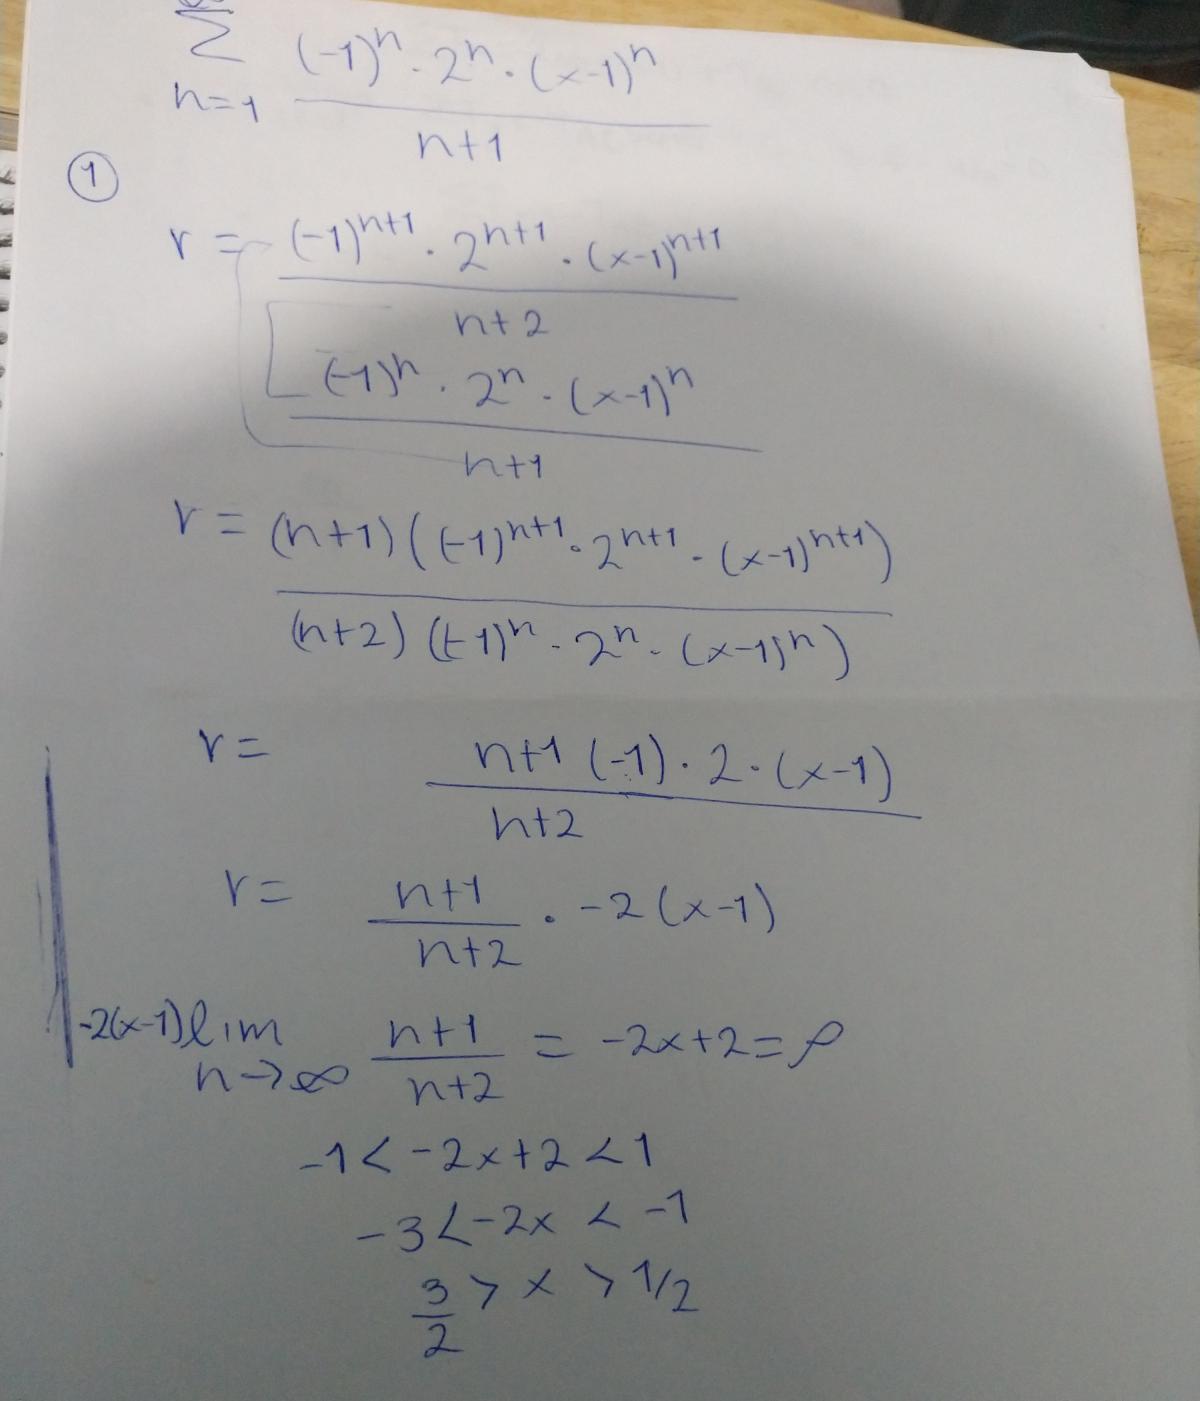 ∞
Σ (-1)ⁿ · 2ⁿ · (x-1)ⁿ
n=1
n+1
①
r = (-1)ⁿ⁺¹ · 2ⁿ⁺¹ · (x-1)ⁿ⁺¹
n+2
(-1)ⁿ · 2ⁿ · (x-1)ⁿ
n+1
r = (n+1)((-1)ⁿ⁺¹ · 2ⁿ⁺¹ · (x-1)ⁿ⁺¹)
(n+2)((-1)ⁿ · 2ⁿ · (x-1)ⁿ)
r = n+1 (-1) · 2 · (x-1)
n+2
r = n+1 · -2(x-1)
n+2
-2(x-1) lim n+1 = -2x+2 = ρ
n→∞ n+2
-1 < -2x+2 < 1
-3 < -2x < -1
3/2 > x > 1/2